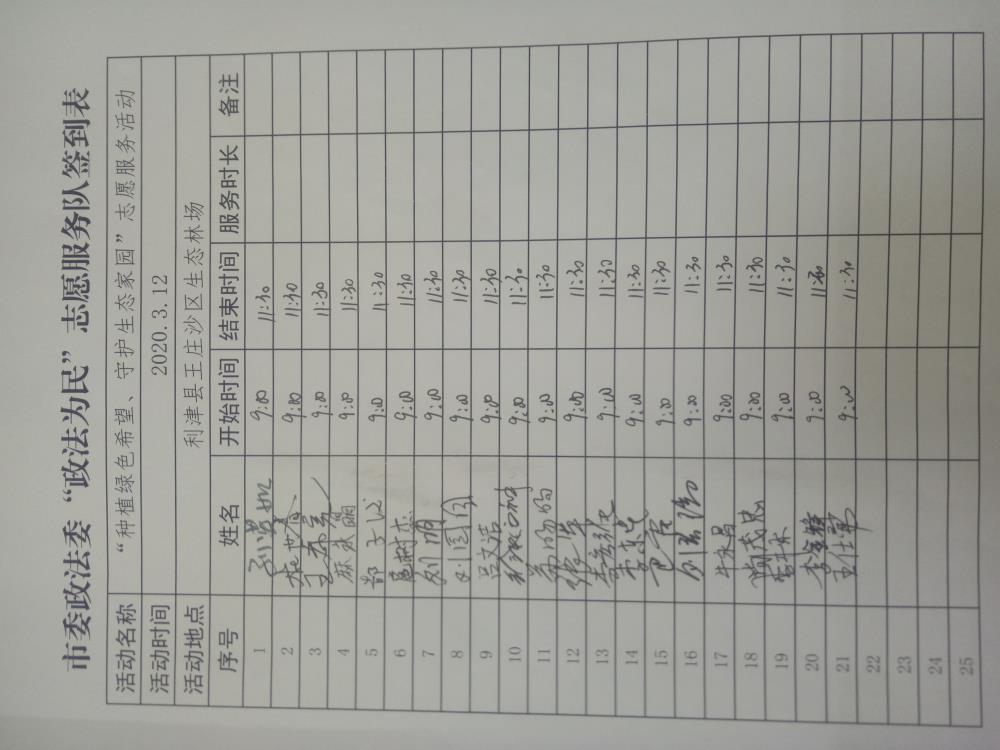 市委政法委“政法为民”志愿服务队签到表
活动名称 “种植绿色希望、守护生态家园”志愿服务活动
活动时间 2020.3.12
活动地点 利津县王庄沙区生态林场
序号 姓名 开始时间 结束时间 服务时长 备注
1 9:00 11:30
2 9:00 11:30
3 9:00 11:30
4 9:00 11:30
5 郜子心 9:00 11:30
6 9:00 11:30
7 9:00 11:30
8 刘国同 9:00 11:30
9 吕文洁 9:00 11:30
10 9:00 11:30
11 9:00 11:30
12 张军 9:00 11:30
13 9:00 11:30
14 9:00 11:30
15 9:00 11:30
16 9:00 11:30
17 牛永昌 9:00 11:30
18 隋茂忠 9:00 11:30
19 9:00 11:30
20 9:00 11:30
21 王仕军 9:00 11:30
22
23
24
25